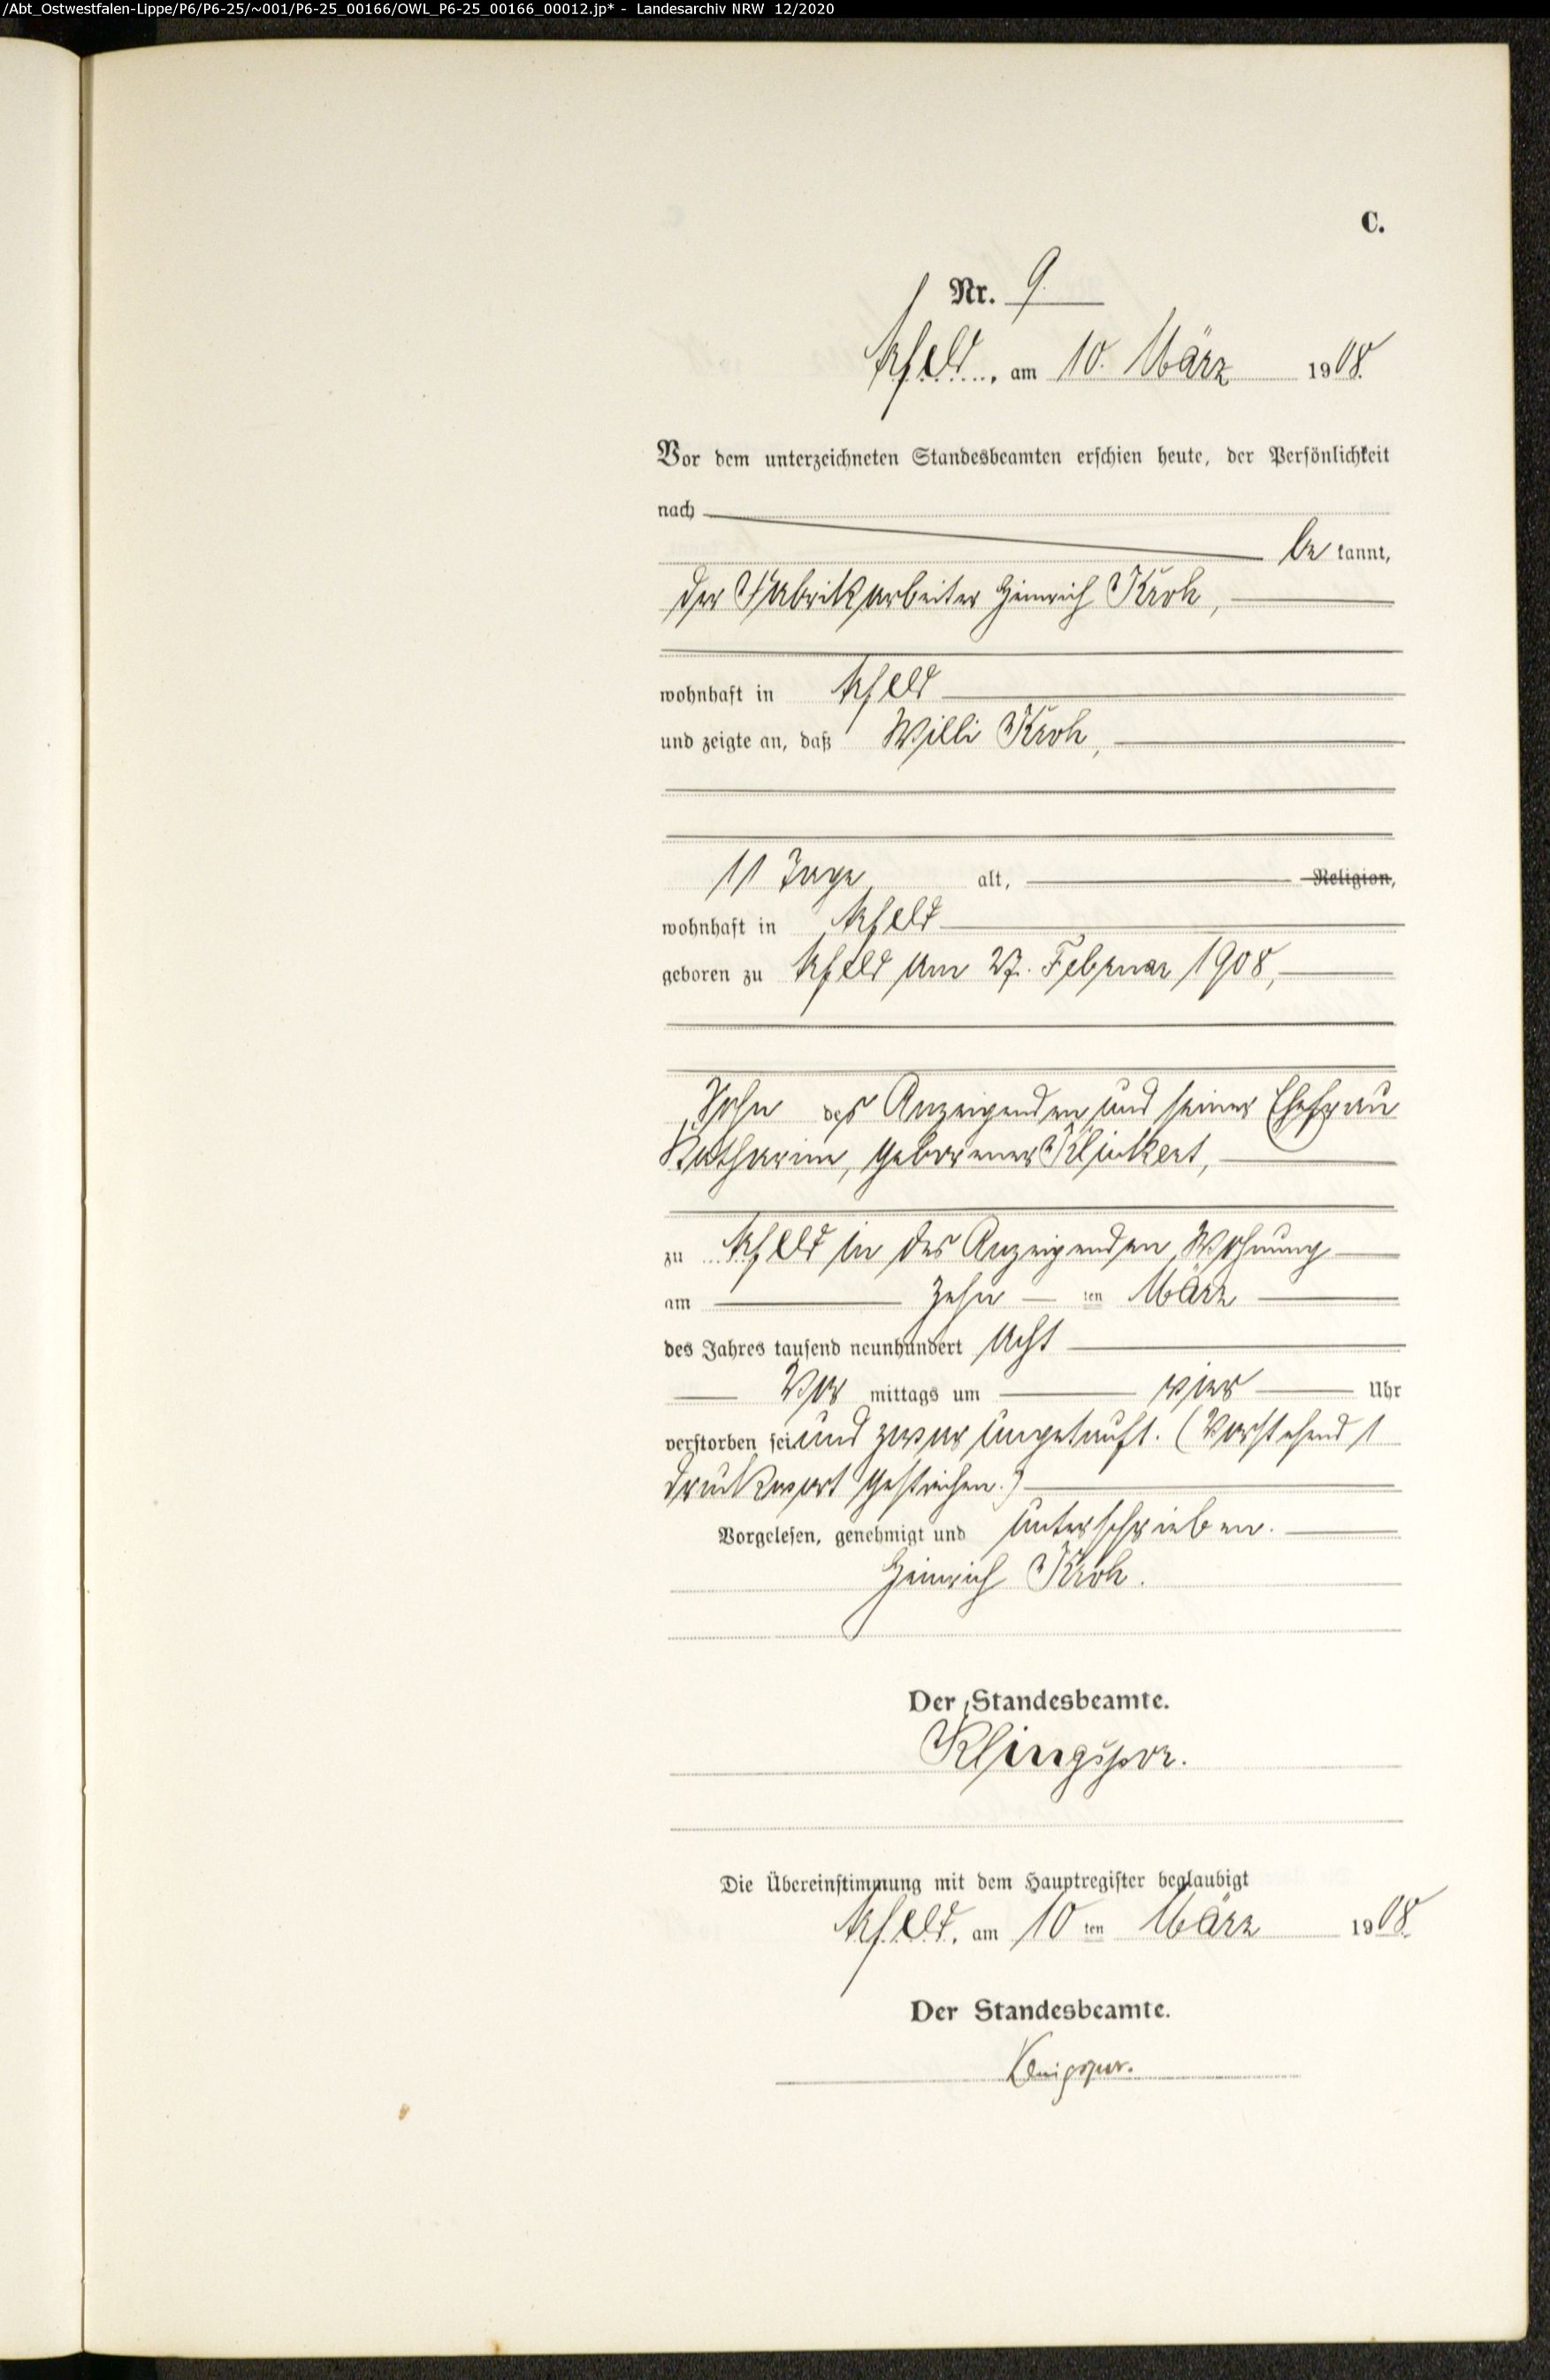 /Abt_Ostwestfalen-Lippe/P6/P6-25/~001/P6-25_00166/OWL_P6-25_00166_00012.jp* - Landesarchiv NRW 12/2020
C.
Nr. 9.
Arfeld, am 10. März 1908.
Vor dem unterzeichneten Standesbeamten erschien heute, der Persönlichkeit
nach
be kannt,
der Fabrikarbeiter Heinrich Kroh,
wohnhaft in Arfeld
und zeigte an, daß Willi Kroh,
11 Tage alt, Religion,
wohnhaft in Arfeld
geboren zu Arfeld am 27. Februar 1908,
Sohn des Anzeigenden und seiner Ehefrau
Katharine, geborener Klinkert,
zu Arfeld in des Anzeigenden Wohnung
am zehn ten März
des Jahres tausend neunhundert acht
Vor mittags um vier Uhr
verstorben sei und zwar ungetauft. (Vorstehend 1
Druckwort gestrichen.)
Vorgelesen, genehmigt und unterschrieben.
Heinrich Kroh.
Der Standesbeamte.
Klingspor.
Die Übereinstimmung mit dem Hauptregister beglaubigt
Arfeld, am 10 ten März 1908.
Der Standesbeamte.
Klingspor.